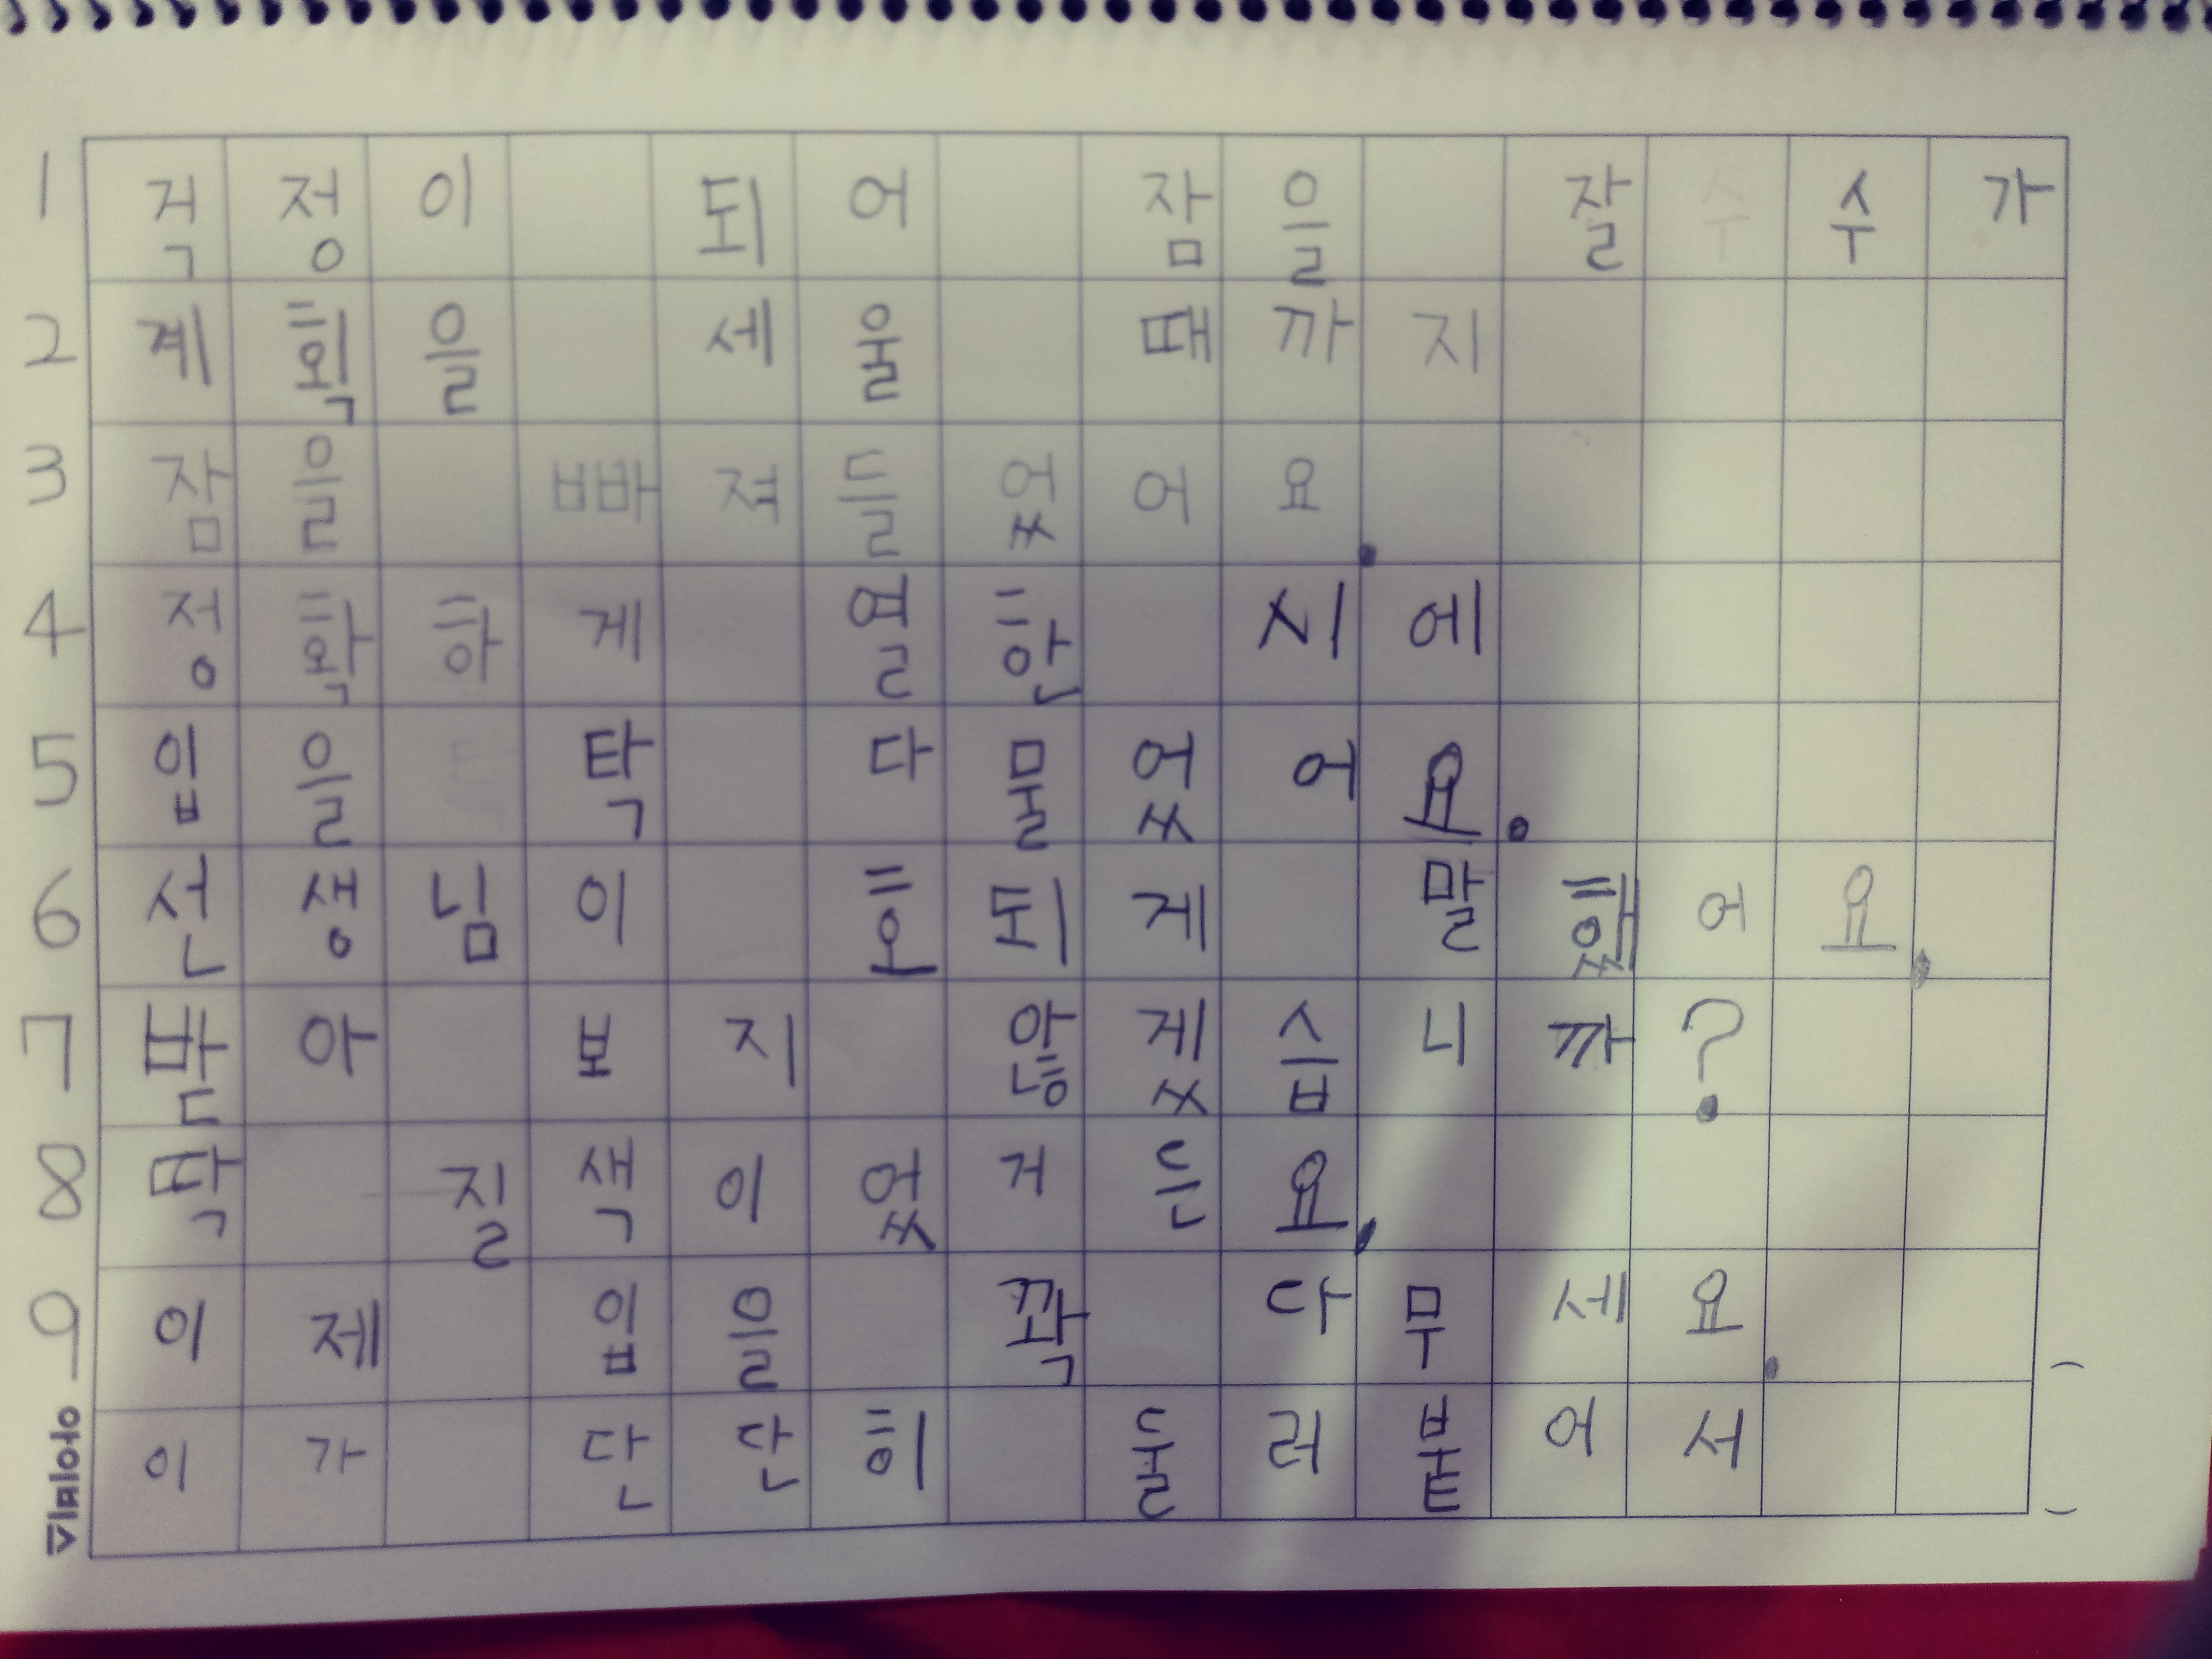 1 걱정이 되어 잠을 잘 수가
2 계획을 세울 때까지
3 잠을 빠져들었어요.
4 정확하게 열한 시에
5 입을 탁 다물었어요.
6 선생님이 호되게 말했어요.
7 받아 보지 않겠습니까?
8 딱 질색이었거든요.
9 이제 입을 꽉 다무세요.
이가 단단히 둘러붙어서